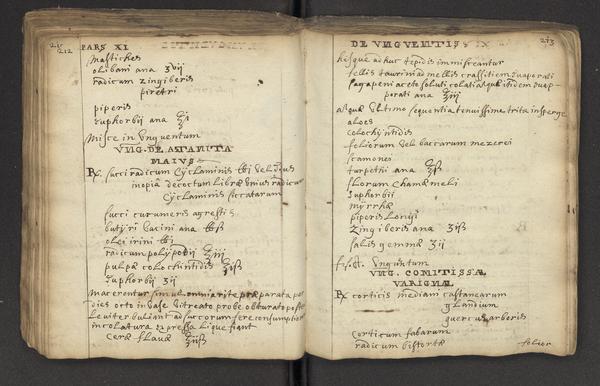 211
212
PARS XI
Mastiches
olibani ana ʒvij
radicum Zingiberis
piretri
piperis
Euphorbii ana ℥ß
Misce in Unguentum
UNG. DE ARTANITA
MAIUS
℞. succi radicum Cyclaminis ℔i vel ejus
inopia decoctum libræ unius radicum
Cyclaminis siccatarum
succi cucumeris agrestis
butyri vacini ana ℔ß
olei irini ℔i
radicum polypodii ℥iij
pulpæ colochintidis ℥iß
Euphorbii ʒij
macerentur simul omnia rite præparata per
dies octo in vase vitreato probe obturato postea
leviter buliant ad succorum fere consumptionem
in colatura expressa liquefiant
Ceræ flavæ ℥iiß
DE UNGUENTIS
213
hisque adhuc tepidis immisceantur
fellis taurini ad mellis crassitiem evaporati
sagapeni aceto soluti colati atque itidem evap-
porati ana ℥iij
atque ultimo sequentia tenuissime trita insperge
aloes
colochyntidis
foliorum vel baccarum mezerei
scamonei
turpethi ana ℥ß
florum chamæmeli
Euphorbii
myrrhæ
piperis Longi
Zingiberis ana ʒiß
salis gemmæ ʒij
fiat Unguntum
UNG. COMITISSÆ
VARIGNÆ
℞ corticis mediani castanearum
glandium
quercus arboris
corticum fabarum
radicum bistortæ
folior